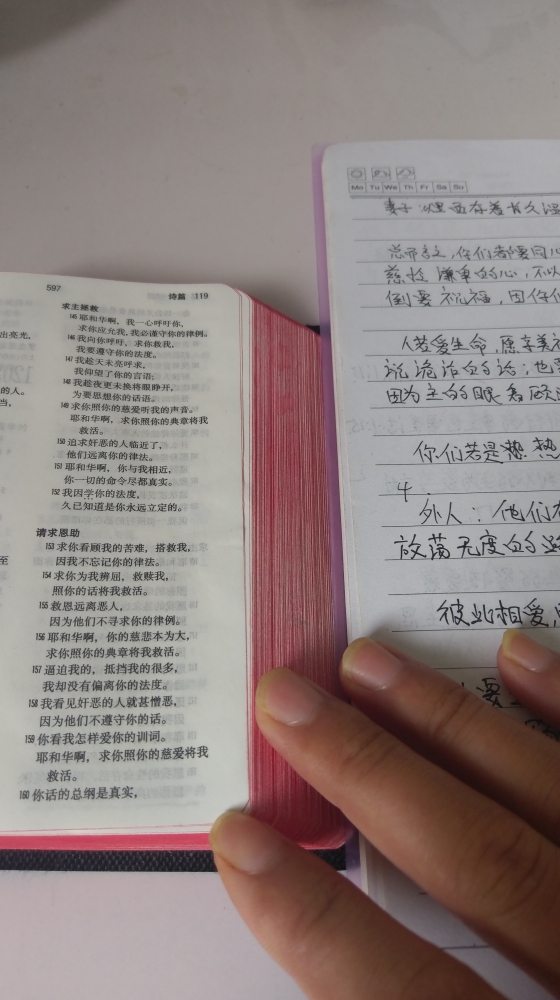 597
诗篇 119
出亮光，
的人。
当，
至
求主拯救
145 耶和华啊，我一心呼吁你，
求你应允我，我必谨守你的律例。
146 我向你呼吁，求你救我，
我要遵守你的法度。
147 我趁天未亮呼求，
我仰望了你的言语。
148 我趁夜更未换将眼睁开，
为要思想你的话语。
149 求你照你的慈爱听我的声音。
耶和华啊，求你照你的典章将我
救活。
150 追求奸恶的人临近了，
他们远离你的律法。
151 耶和华啊，你与我相近，
你一切的命令尽都真实。
152 我因学你的法度，
久已知道是你永远立定的。
请求恩助
153 求你看顾我的苦难，搭救我，
因我不忘记你的律法。
154 求你为我辨屈，救赎我，
照你的话将我救活。
155 救恩远离恶人，
因为他们不寻求你的律例。
156 耶和华啊，你的慈悲本为大，
求你照你的典章将我救活。
157 逼迫我的，抵挡我的很多，
我却没有偏离你的法度。
158 我看见奸恶的人就甚憎恶，
因为他们不遵守你的话。
159 你看我怎样爱你的训词。
耶和华啊，求你照你的慈爱将我
救活。
160 你话的总纲是真实，
Mo Tu We Th Fr Sa Su
妻子 里面存着长久温
总而言之，你们都要同心
慈怜 谦卑的心，不以
倒要祝福，因你们
人若爱生命，愿享美
说诡诈的话；也
因为主的眼看顾
你们若是热
4
外人：他们在
放荡无度的
彼此相爱，
要